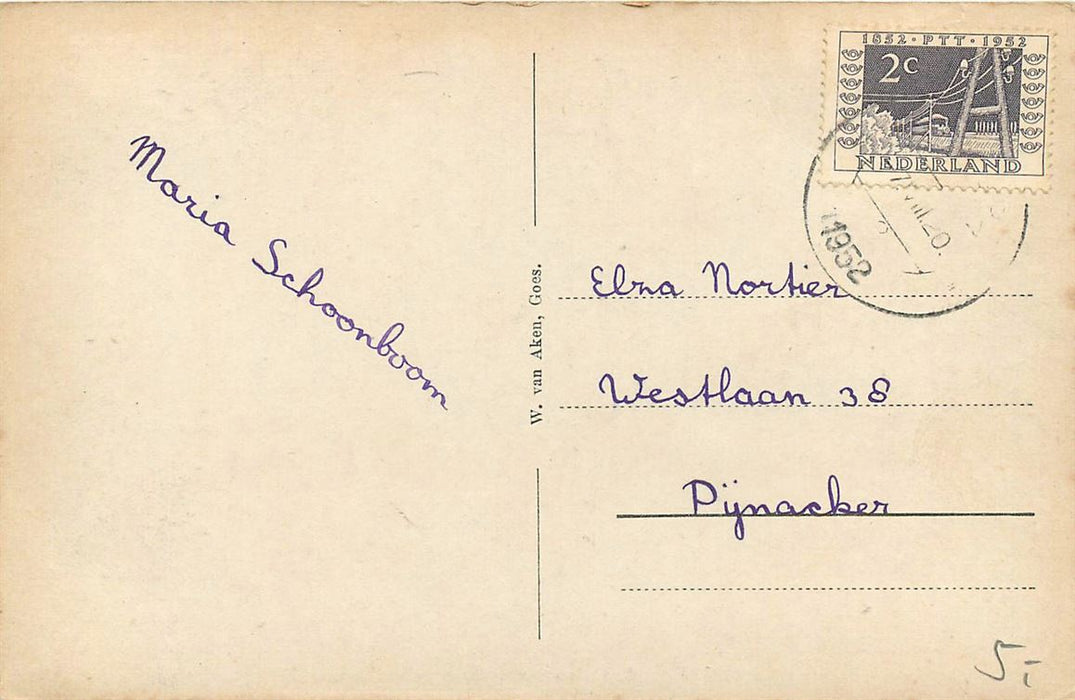 1852 · PTT · 1952
2c
NEDERLAND
VIII.20.
1952
Maria Schoonboom
W. van Aken, Goes.
Elza Nortier
Westlaan 38
Pijnacker
5,-